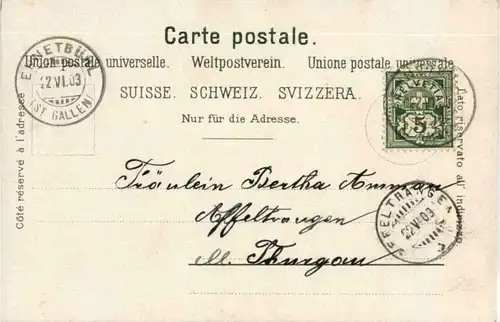 Carte postale.
Union postale universelle. Weltpostverein. Unione postale universale
SUISSE. SCHWEIZ. SVIZZERA.
Nur für die Adresse.
Côté réservé à l'adresse
Lato riservato all' indirizzo
EBNETBÜHL
22.VI.03
(ST. GALLEN)
HELVETIA
5
Fräulein Bertha Amman
Affeltrangen
Thurgau
AFFELTRANGEN
22.VI.03